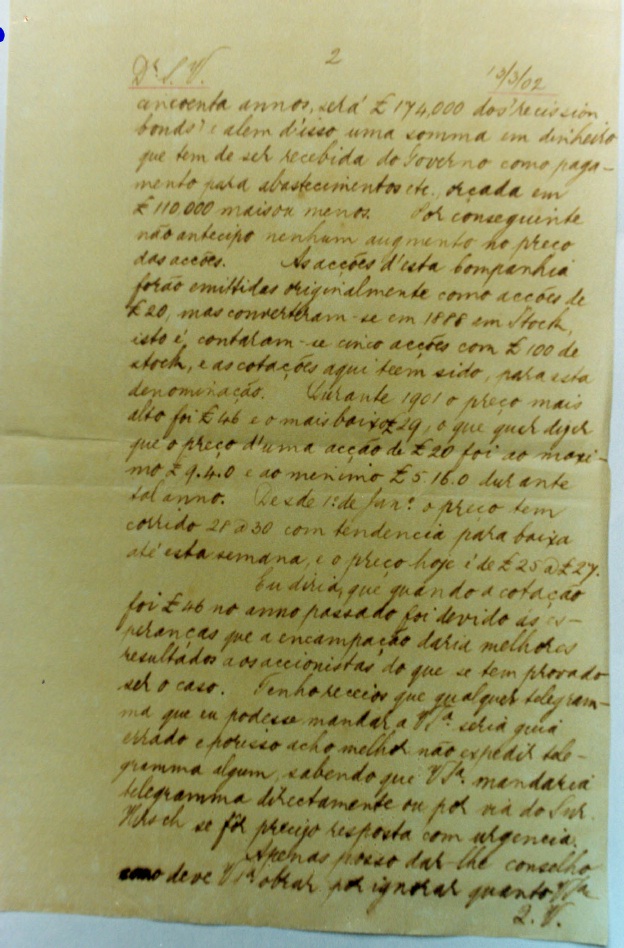 2
Dr. S. V. 19/3/02
cincoenta annos, será £ 174,000 dos "recission
bonds" e alem d'isso uma somma em dinheiro
que tem de ser recebida do Governo como paga-
mento para abastecimentos etc., orçada em
£ 110,000 mais ou menos. Por conseguinte
não antecipo nenhum augmento no preço
das acções. As acções d'esta Companhia
forão emittidas originalmente como acções de
£ 20, mas converteram-se em 1888 em Stock,
isto é, contaram-se cinco acções com £ 100 de
stock, e as cotações aqui teem sido, para esta
denominação. Durante 1901 o preço mais
alto foi £ 46 e o mais baixo £ 29, o que quer dizer
que o preço d'uma acção de £ 20 foi ao maxi-
mo £ 9.4.0 e ao menimo £ 5.16.0 durante
tal anno. Desde 1º de Janº. o preço tem
corrido 28 @ 30 com tendencia para baixa
até esta semana, e o preço hoje é de £ 25 @ £ 27.
Eu diria, que quando a cotação
foi £ 46 no anno passado foi devido ás es-
peranças que a encampação daria melhores
resultados aos accionistas do que se tem provado
ser o caso. Tenho receios que qualquer telegram-
ma que eu podesse mandar a VSª. seria guia
errado e por isso acho melhor não expedir tele-
gramma algum, sabendo que VSª. mandaria
telegramma directamente ou por via do Snr.
Hirsch se fôr precizo resposta com urgencia.
Apenas posso dar-lhe conselho
como deve VSª obrar por ignorar quanto VSª
2. V.